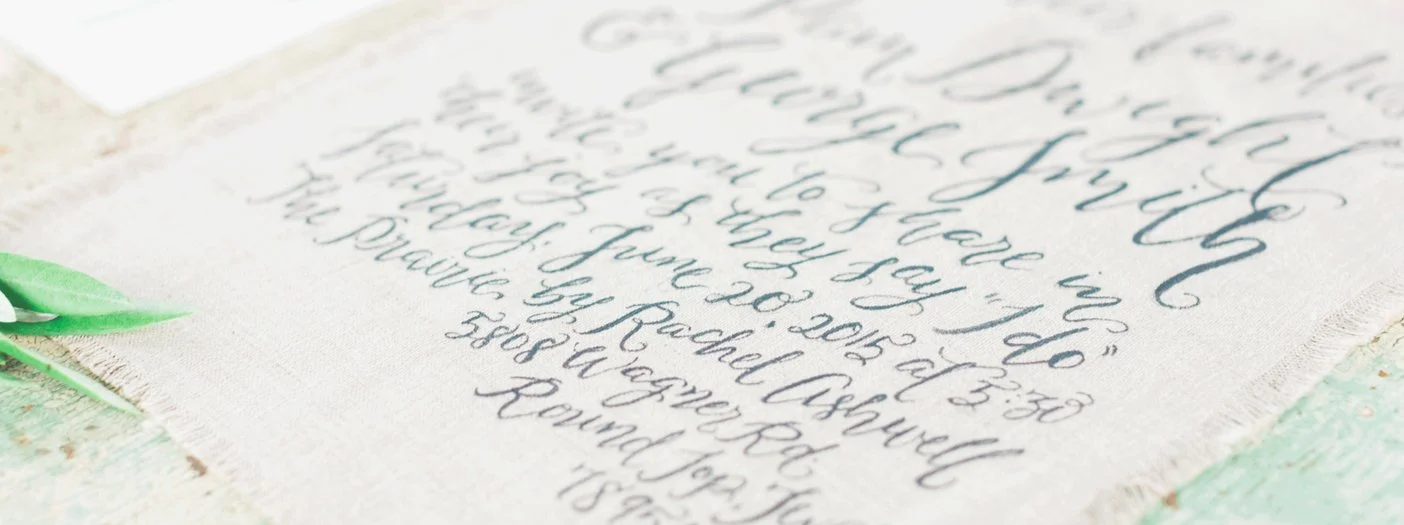 families
Dwight
& George Smith
invite you to share in
their joy as they say "I do"
Saturday, June 20, 2015 at 5:30
The Prairie by Rachel Ashwell
5808 Wagner Rd.
Round Top,